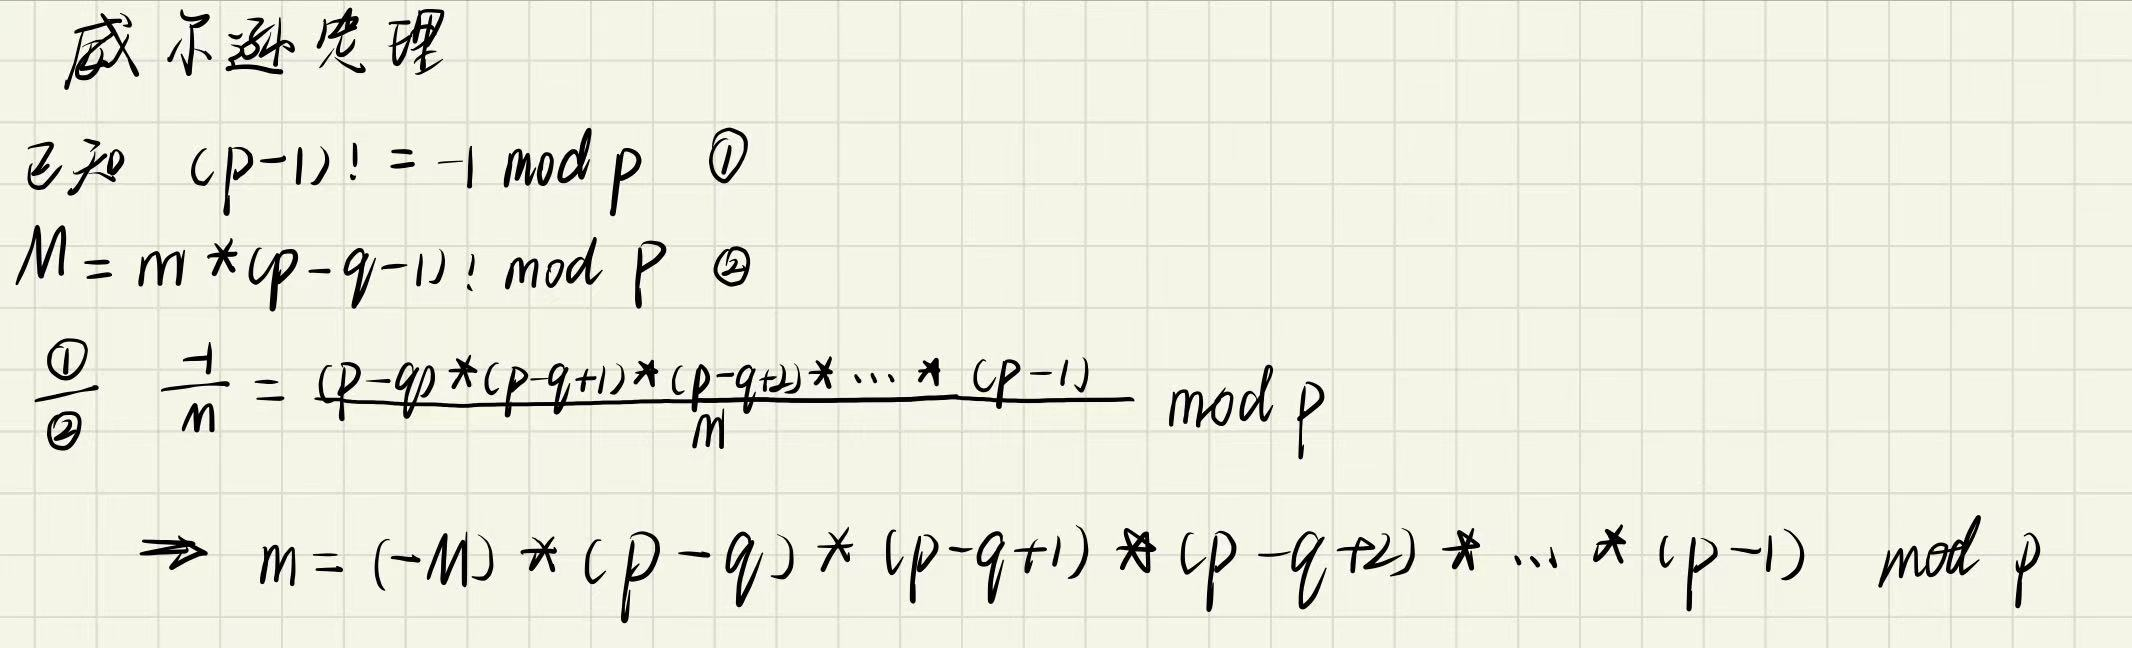 威尔逊定理
已知 (p-1)! = -1 mod p ①
M = m * (p-q-1)! mod p ②
①/② -1/M = (p-q)*(p-q+1)*(p-q+2)*...*(p-1)/m mod p
⇒ m = (-M) * (p-q) * (p-q+1) * (p-q+2) * ... * (p-1) mod p